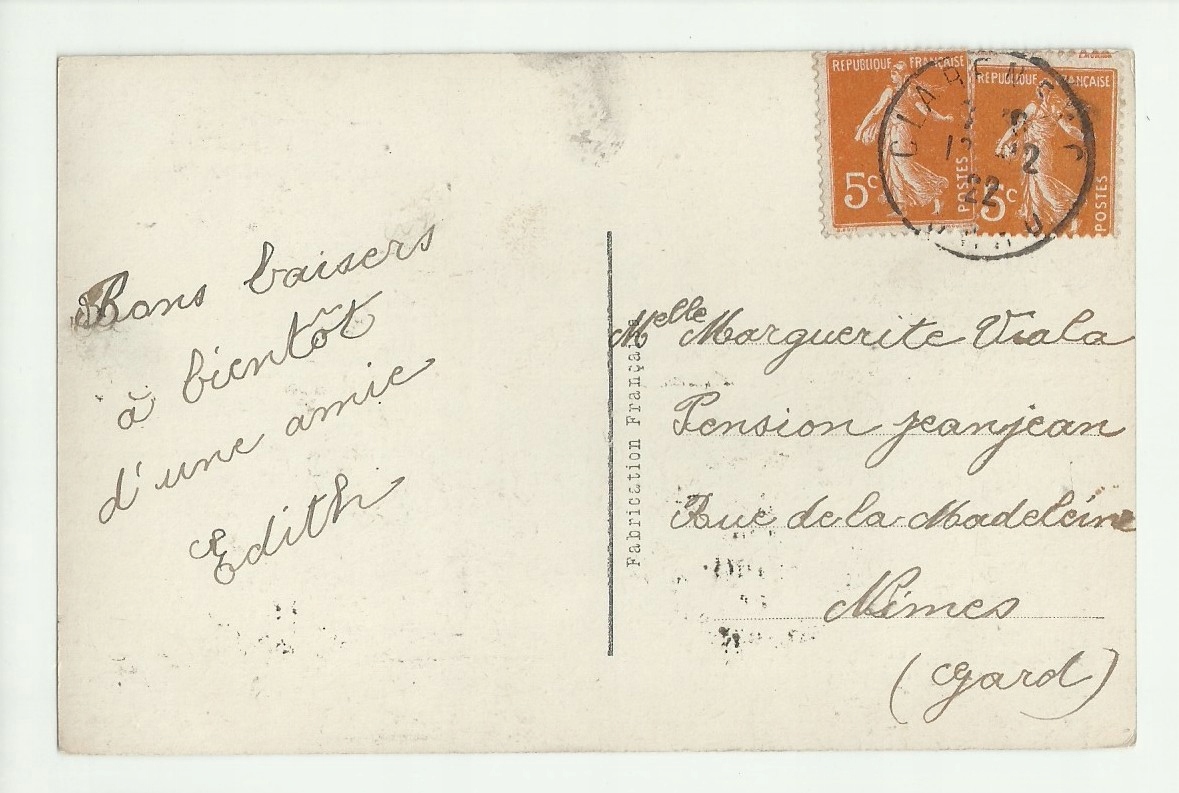 Bons baisers
à bientôt
d'une amie
Edith
Fabrication Française
REPUBLIQUE FRANÇAISE
5c
POSTES
REPUBLIQUE FRANÇAISE
5c
POSTES
22
Melle Marguerite Viala
Pension jeanjean
Rue de la Madeleine
Nîmes
(Gard)